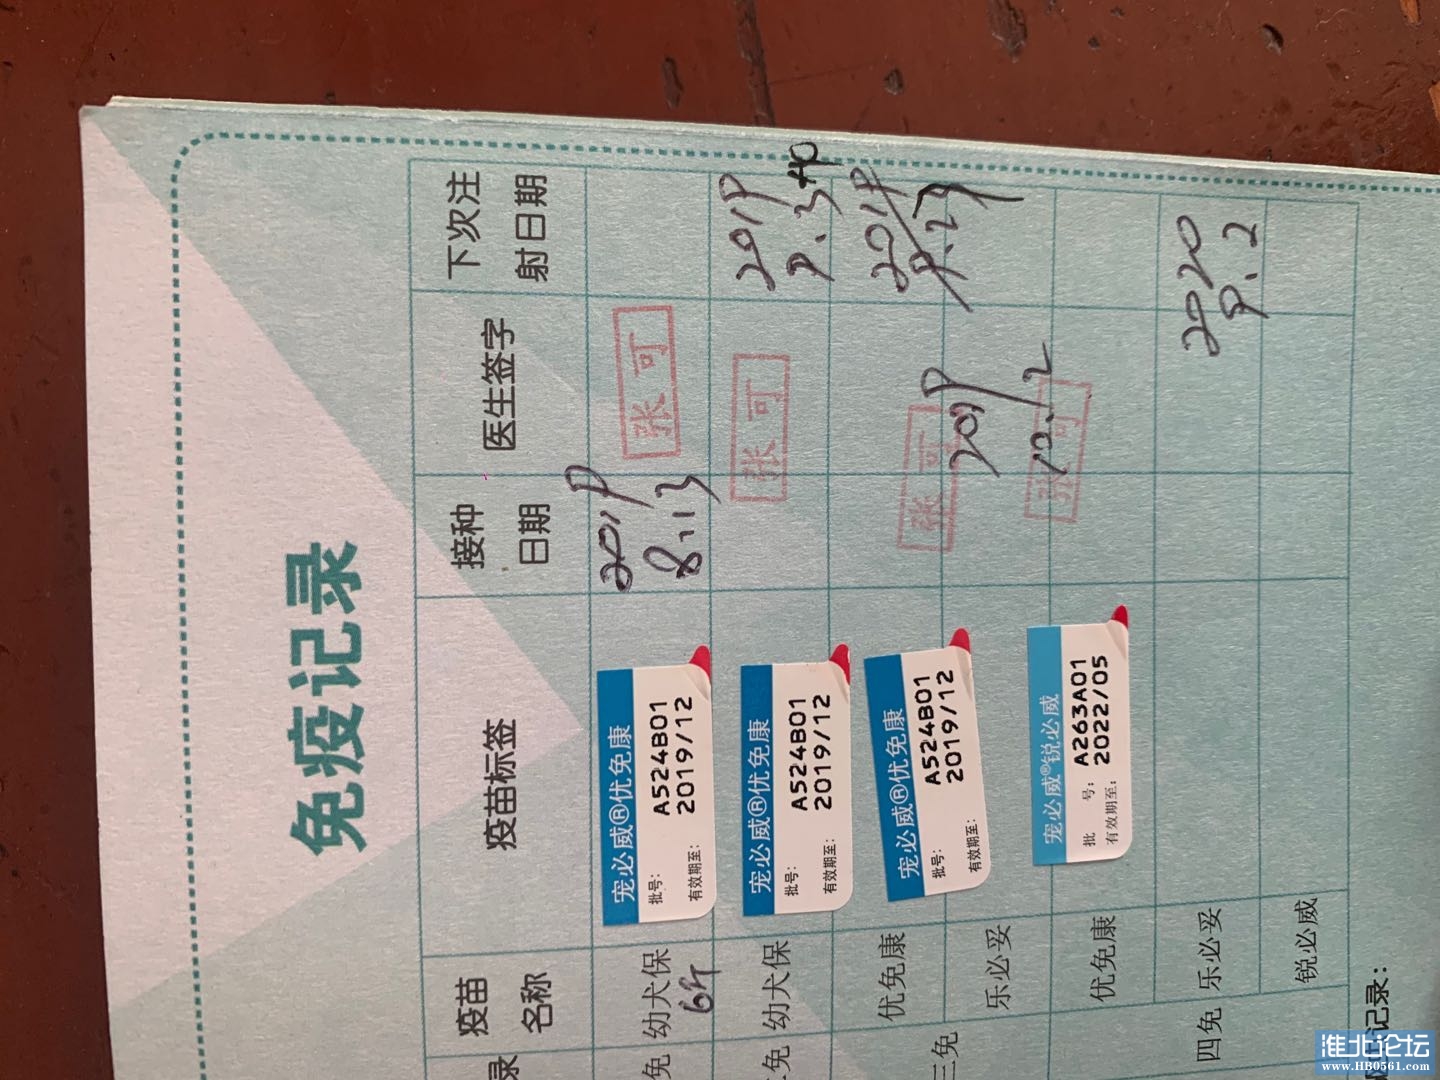 免疫记录
录
疫苗
名称
疫苗标签
接种
日期
医生签字
下次注
射日期
免
幼犬保
宠必威®优免康
批号: A524B01
有效期至: 2019/12
2019
8.13
张可
免
幼犬保
宠必威®优免康
批号: A524B01
有效期至: 2019/12
张可
2019
9.3
三免
优免康
乐必妥
宠必威®优免康
批号: A524B01
有效期至: 2019/12
张可
2019
9.29
优免康
宠必威®锐必威
批 号: A263A01
有效期至: 2022/05
2019
12.2
张可
四免
乐必妥
锐必威
2020
9.2
记录:
淮北论坛
www.HB0561.com